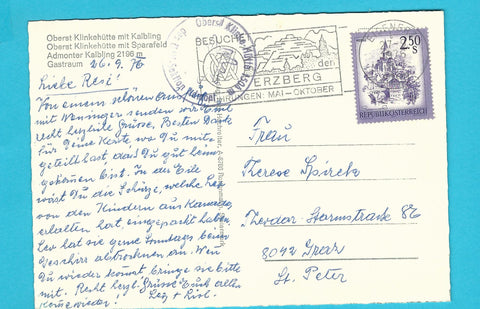 Oberst Klinkehütte mit Kalbling
Oberst Klinkehütte mit Sparafeld
Admonter Kalbling 2196 m
Gastraum
26.9.76
Liebe Resi!
Von einem schönen
mit Weninger senden wir Dir
recht herzliche Grüsse, Besten Dank
für Deine Karte wo Du mit-
geteilt hast, dass Du gut heim
gekommen bist. In der Eile
wärst Du die Schürze, welche
von den Kindern aus
erhalten hat, eingepackt haben.
hat sie gerne Sonntags beim
Geschirr abtrocknen an. Wenn
Du wieder kommst bringe sie bitte
mit. Recht herzl. Grüsse Euch allen
Komme wieder!
BESUCHET
den
ERZBERG
FÜHRUNGEN: MAI – OKTOBER
2.50
S
REPUBLIK ÖSTERREICH
Frau
Therese
Theodor-Stormstrasse 86
8042 Graz
St. Peter